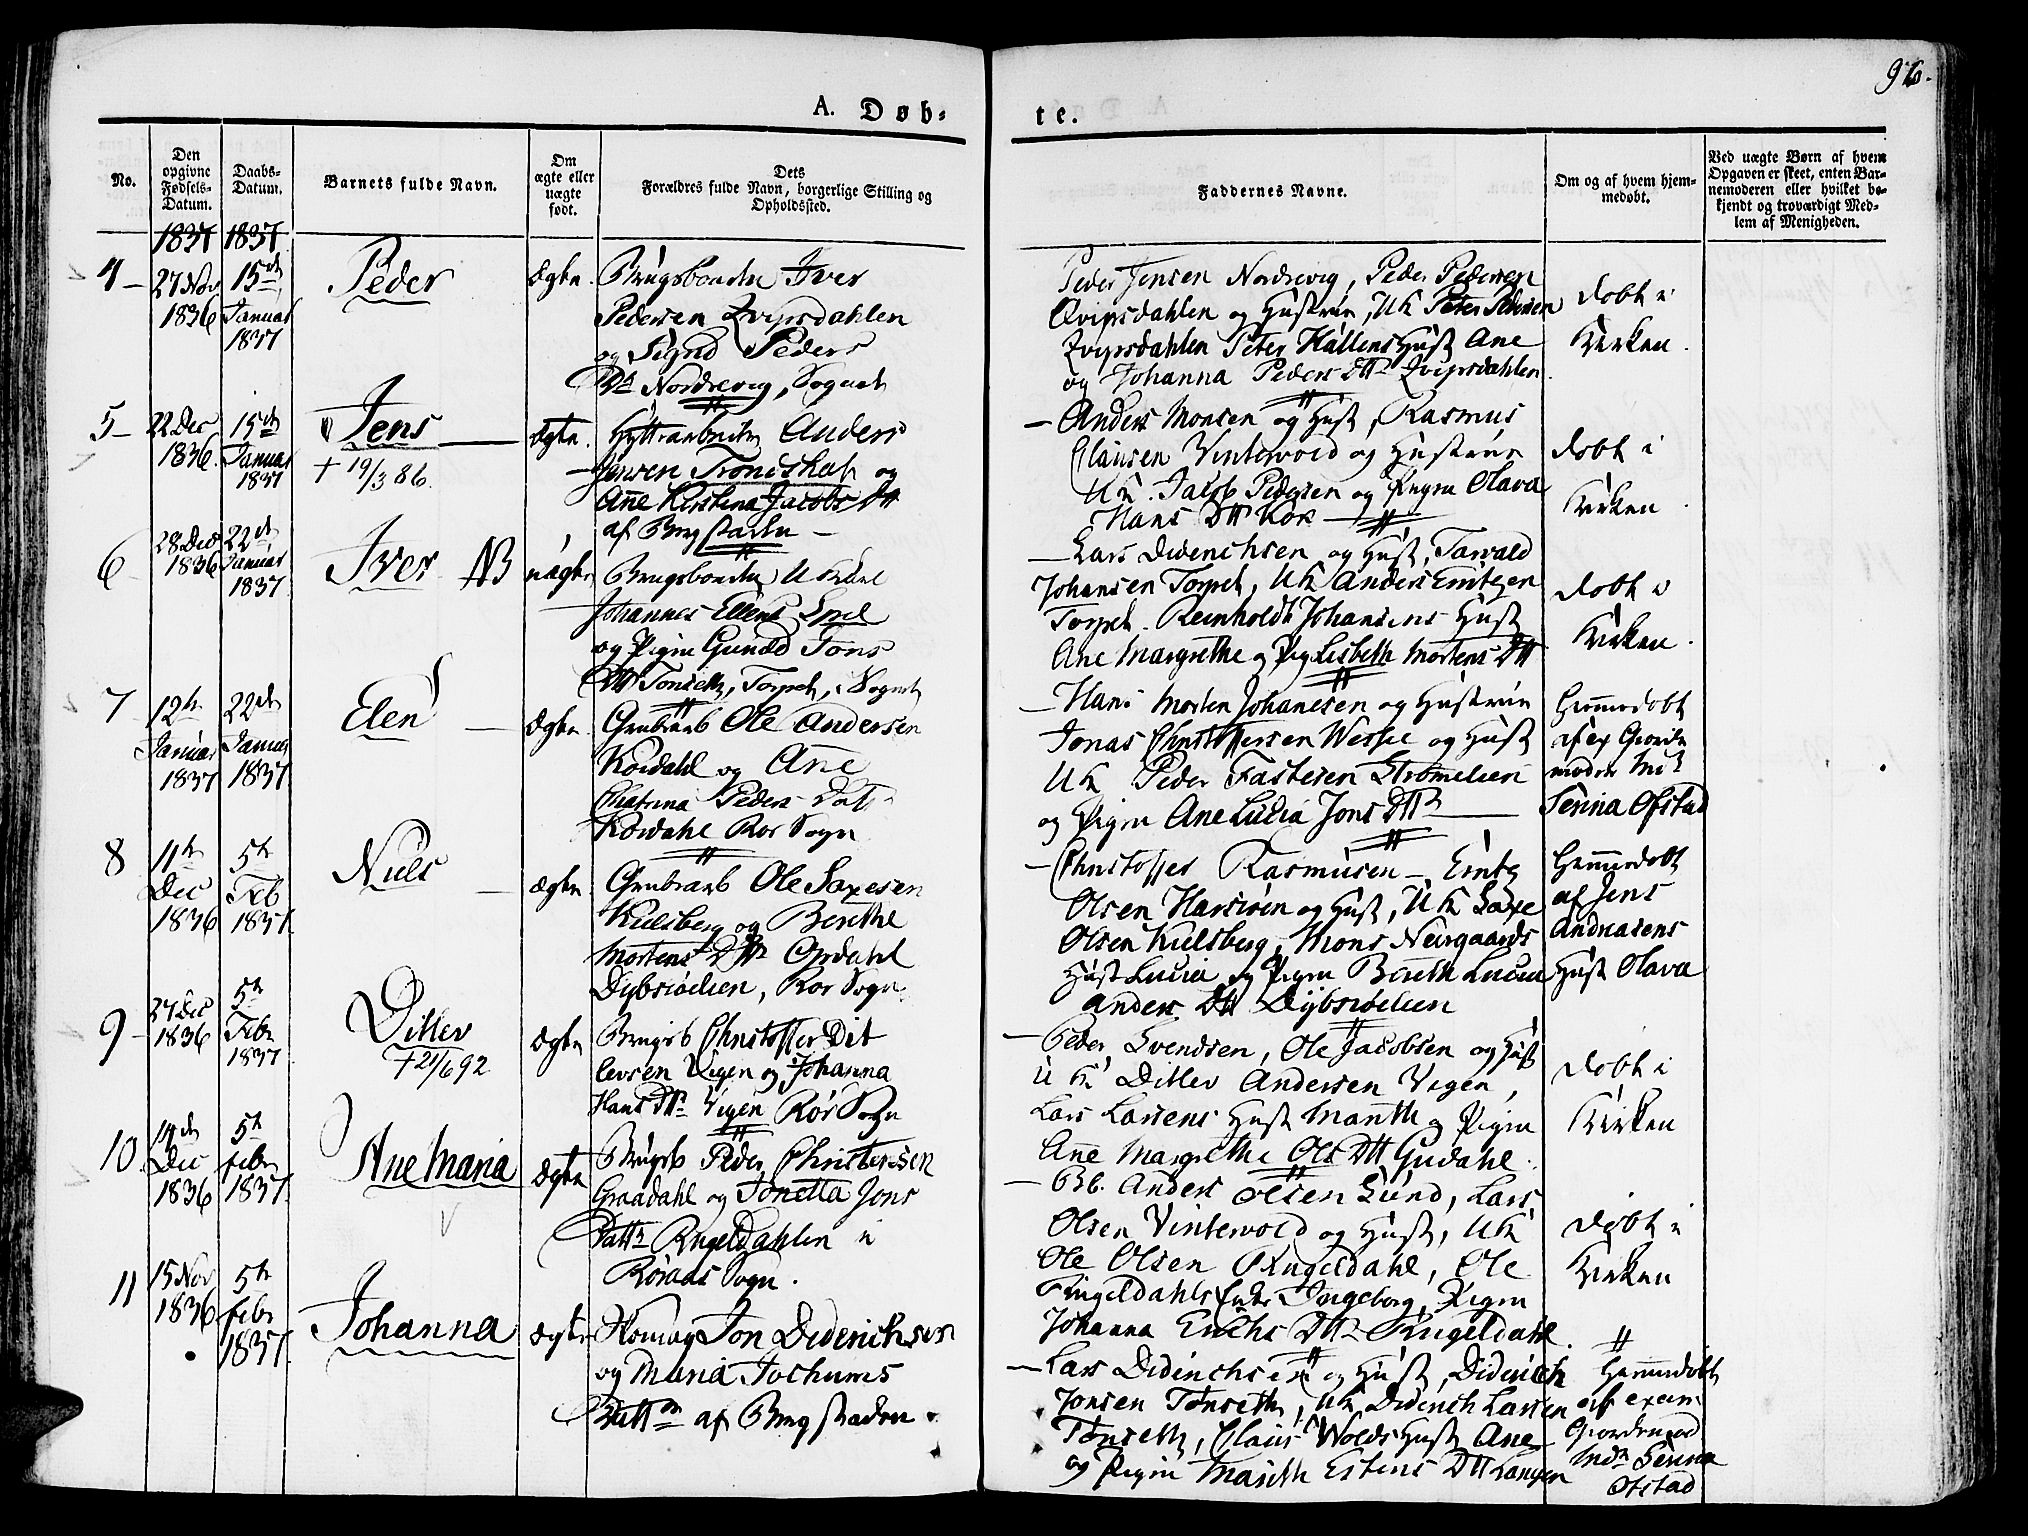 96.
A. Døb-
te.
No.
Den opgivne Fødsels-Datum.
Daabs-Datum.
Barnets fulde Navn.
Om ægte eller uægte født.
Dets Forældres fulde Navn, borgerlige Stilling og Opholdssted.
Faddernes Navne.
Om og af hvem hjem-medøbt.
Ved uægte Børn af hvem Opgaven er skeet, enten Bar-nemoderen eller hvilket be-kjendt og troværdigt Med-lem af Menigheden.
1837 1837
4 –
27 Nov
1836
15de
Januar
1837
Peder
Ægte.
Brugsbonden Iver
Pedersen Qvipsdahlen
og Sigrid Peders
Dtr Nordrevig, Sognet
Peder Jensen Nordrevig, Peder Pedersen
Qvipsdahlen og Hustrue, UK Peter Pedersen
Qvipsdahlen Peter Hallens Hust Ane
og Johanna Peders Dtr Qvipsdahlen
døbt i
Kirken.
5 –
22 Dec
1836.
15de
Januar
1837
Jens
+ 19/3 86.
Ægte.
Hyttearbeider Anders
Jensen Trondskat og
Ane Kirstina Jacobs Dtt
af Bergstaden –
– Anders Monsen og Hust, Rasmus
Clausen Vintervold og Hustrue
UK. Jacob Pedersen og Pigen Olava
Hans Dtt Kox
døbt i
Kirken
6
28 Dec
1836
22de
Januar
1837.
Iver NB
uægte
Brugsbonden Ukarl
Johannes Ellens
og Pigen Guned Jons
Dtt Tonseth, Torpet, i Sognet
– Lars Diderichsen og Hust, Tarvald
Johansen Torpet, UK Anders Erntzen
Torpet. Reinholdt Johansens Hust
Ane Margrethe og Pig Lisbeth Mortens Dtt
døbt i
Kirken.
7
12te
Januar
1837
22de
Januar
1837
Elen
Ægte
Grubearb Ole Andersen
Kordahl og Ane
Chatrina Peders Datt
Kordahl Rør Sogn
– Hans Morten Johanesen og Hustrue
Jonas Christophersen Wessie og Hust
UK Peder Fastesen Strømelien
og Pigen Ane Lucia Jons Dtr
Hjemmedøbt
af ex Gjorde
moder Md
Serina Ofstad
8
11te
Dec
1836
5te
Feb
1837.
Niels
Ægte
Grubearb Ole Saxesen
Kielsberg og Berethe
Mortens Dtr Opdahl
Dybsiøelien, Rør Sogn
– Christoffer Rasmusen – Erntz
Olsen Harsiøen og Hust, UK Saxe
Olsen Kielsberg, Mons Neirgaards
Hust Lucia og Pigen Bereth Lucia
Anders Dtt Dybsiøelien
Hjemmedøbt
af Jens
Andreasens
Hust Olava
9
27 Dec
1836
5te
Febr
1837
Ditlev
+ 21/6 92
Ægte
Brugsb Christoffer Dit
levsen Vigen og Johanna
Hans Dtr Vigen Rør Sogn
– Peder Svendsen, Ole Jacobsen og Hust
UK Ditlev Andersen Vigen,
Lars Larsens Hust Mareth og Pigen
Ane Margrethe Ols Dtt Gudahl.
døbt i
Kirken
10
14de
Dec
1836
5te
febr
1837.
Ane Maria
Ægte
Brugsb Peder Christensen
Graadahl og Jonetta Jons
Datter Rugeldahlen i
Røraas Sogn.
– Bb. Anders Olsen Lund, Lars
Olsen Vintervold og Hust, UK
Ole Olsen Rugeldahl, Ole
Rugeldahls Enke Ingeborg, Pigen
Johanna Erichs Dtr Rugeldahl.
døbt i
Kirken
11
15 Nov
1836
5te
febr
1837.
Johanna
Ægte
Jon Diderichsen
og Maria Jochums
Datter af Bergstaden.
– Lars Diderichsen og Hust, Diderich
Jonsen Tønseth, UK Diderich Larsen
Tønseth, Claus Wolds Hust Ane
og Pigen Mareth Estens Dtt Langen
Hjemmedøbt
af exam
Gjordemod
Md Serina
Ofstad